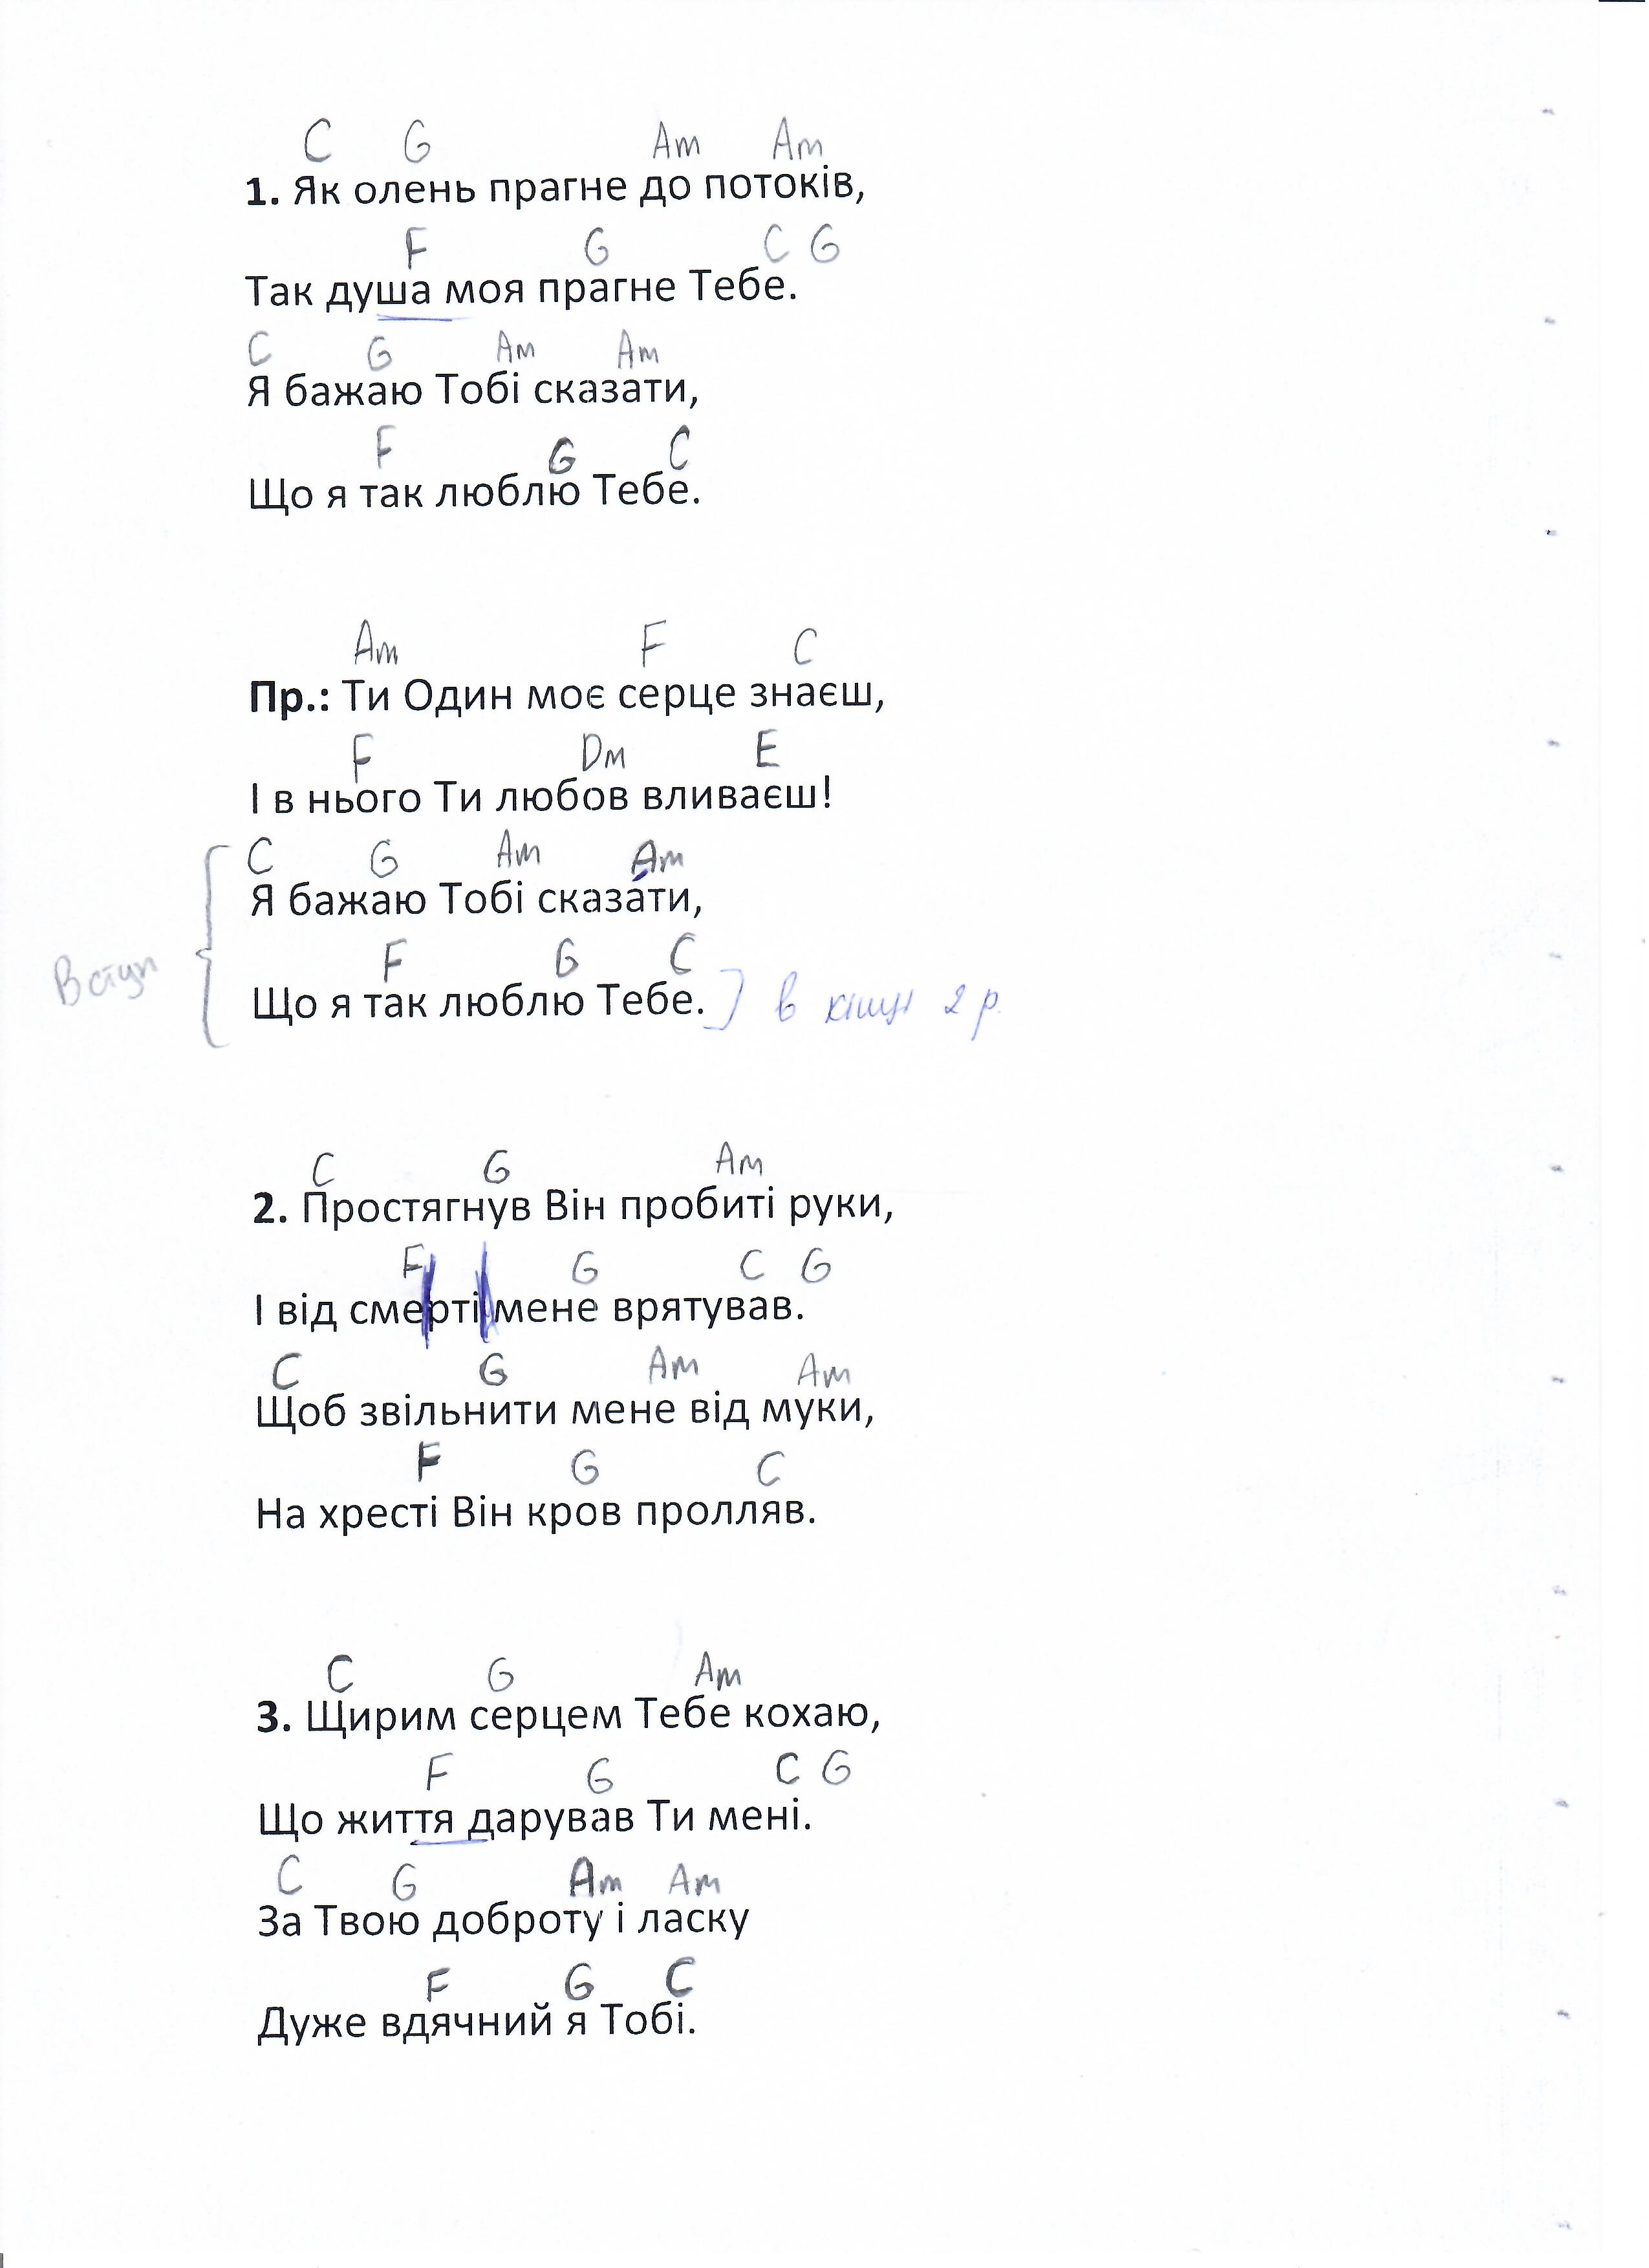 C G Am Am
1. Як олень прагне до потоків,
F G C G
Так душа моя прагне Тебе.
C G Am Am
Я бажаю Тобі сказати,
F G C
Що я так люблю Тебе.
Am F C
Пр.: Ти Один моє серце знаєш,
F Dm E
І в нього Ти любов вливаєш!
C G Am Am
Я бажаю Тобі сказати,
F G C
Вступ
Що я так люблю Тебе. в кінці 2 р.
C G Am
2. Простягнув Він пробиті руки,
F G C G
І від смерті мене врятував.
C G Am Am
Щоб звільнити мене від муки,
F G C
На хресті Він кров пролляв.
C G Am
3. Щирим серцем Тебе кохаю,
F G C G
Що життя дарував Ти мені.
C G Am Am
За Твою доброту і ласку
F G C
Дуже вдячний я Тобі.